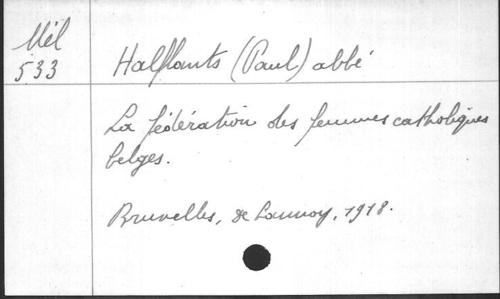 Mél
533
Halflants (Paul) abbé
La fédération des femmes catholiques
belges.
Bruxelles, de Lannoy, 1918.